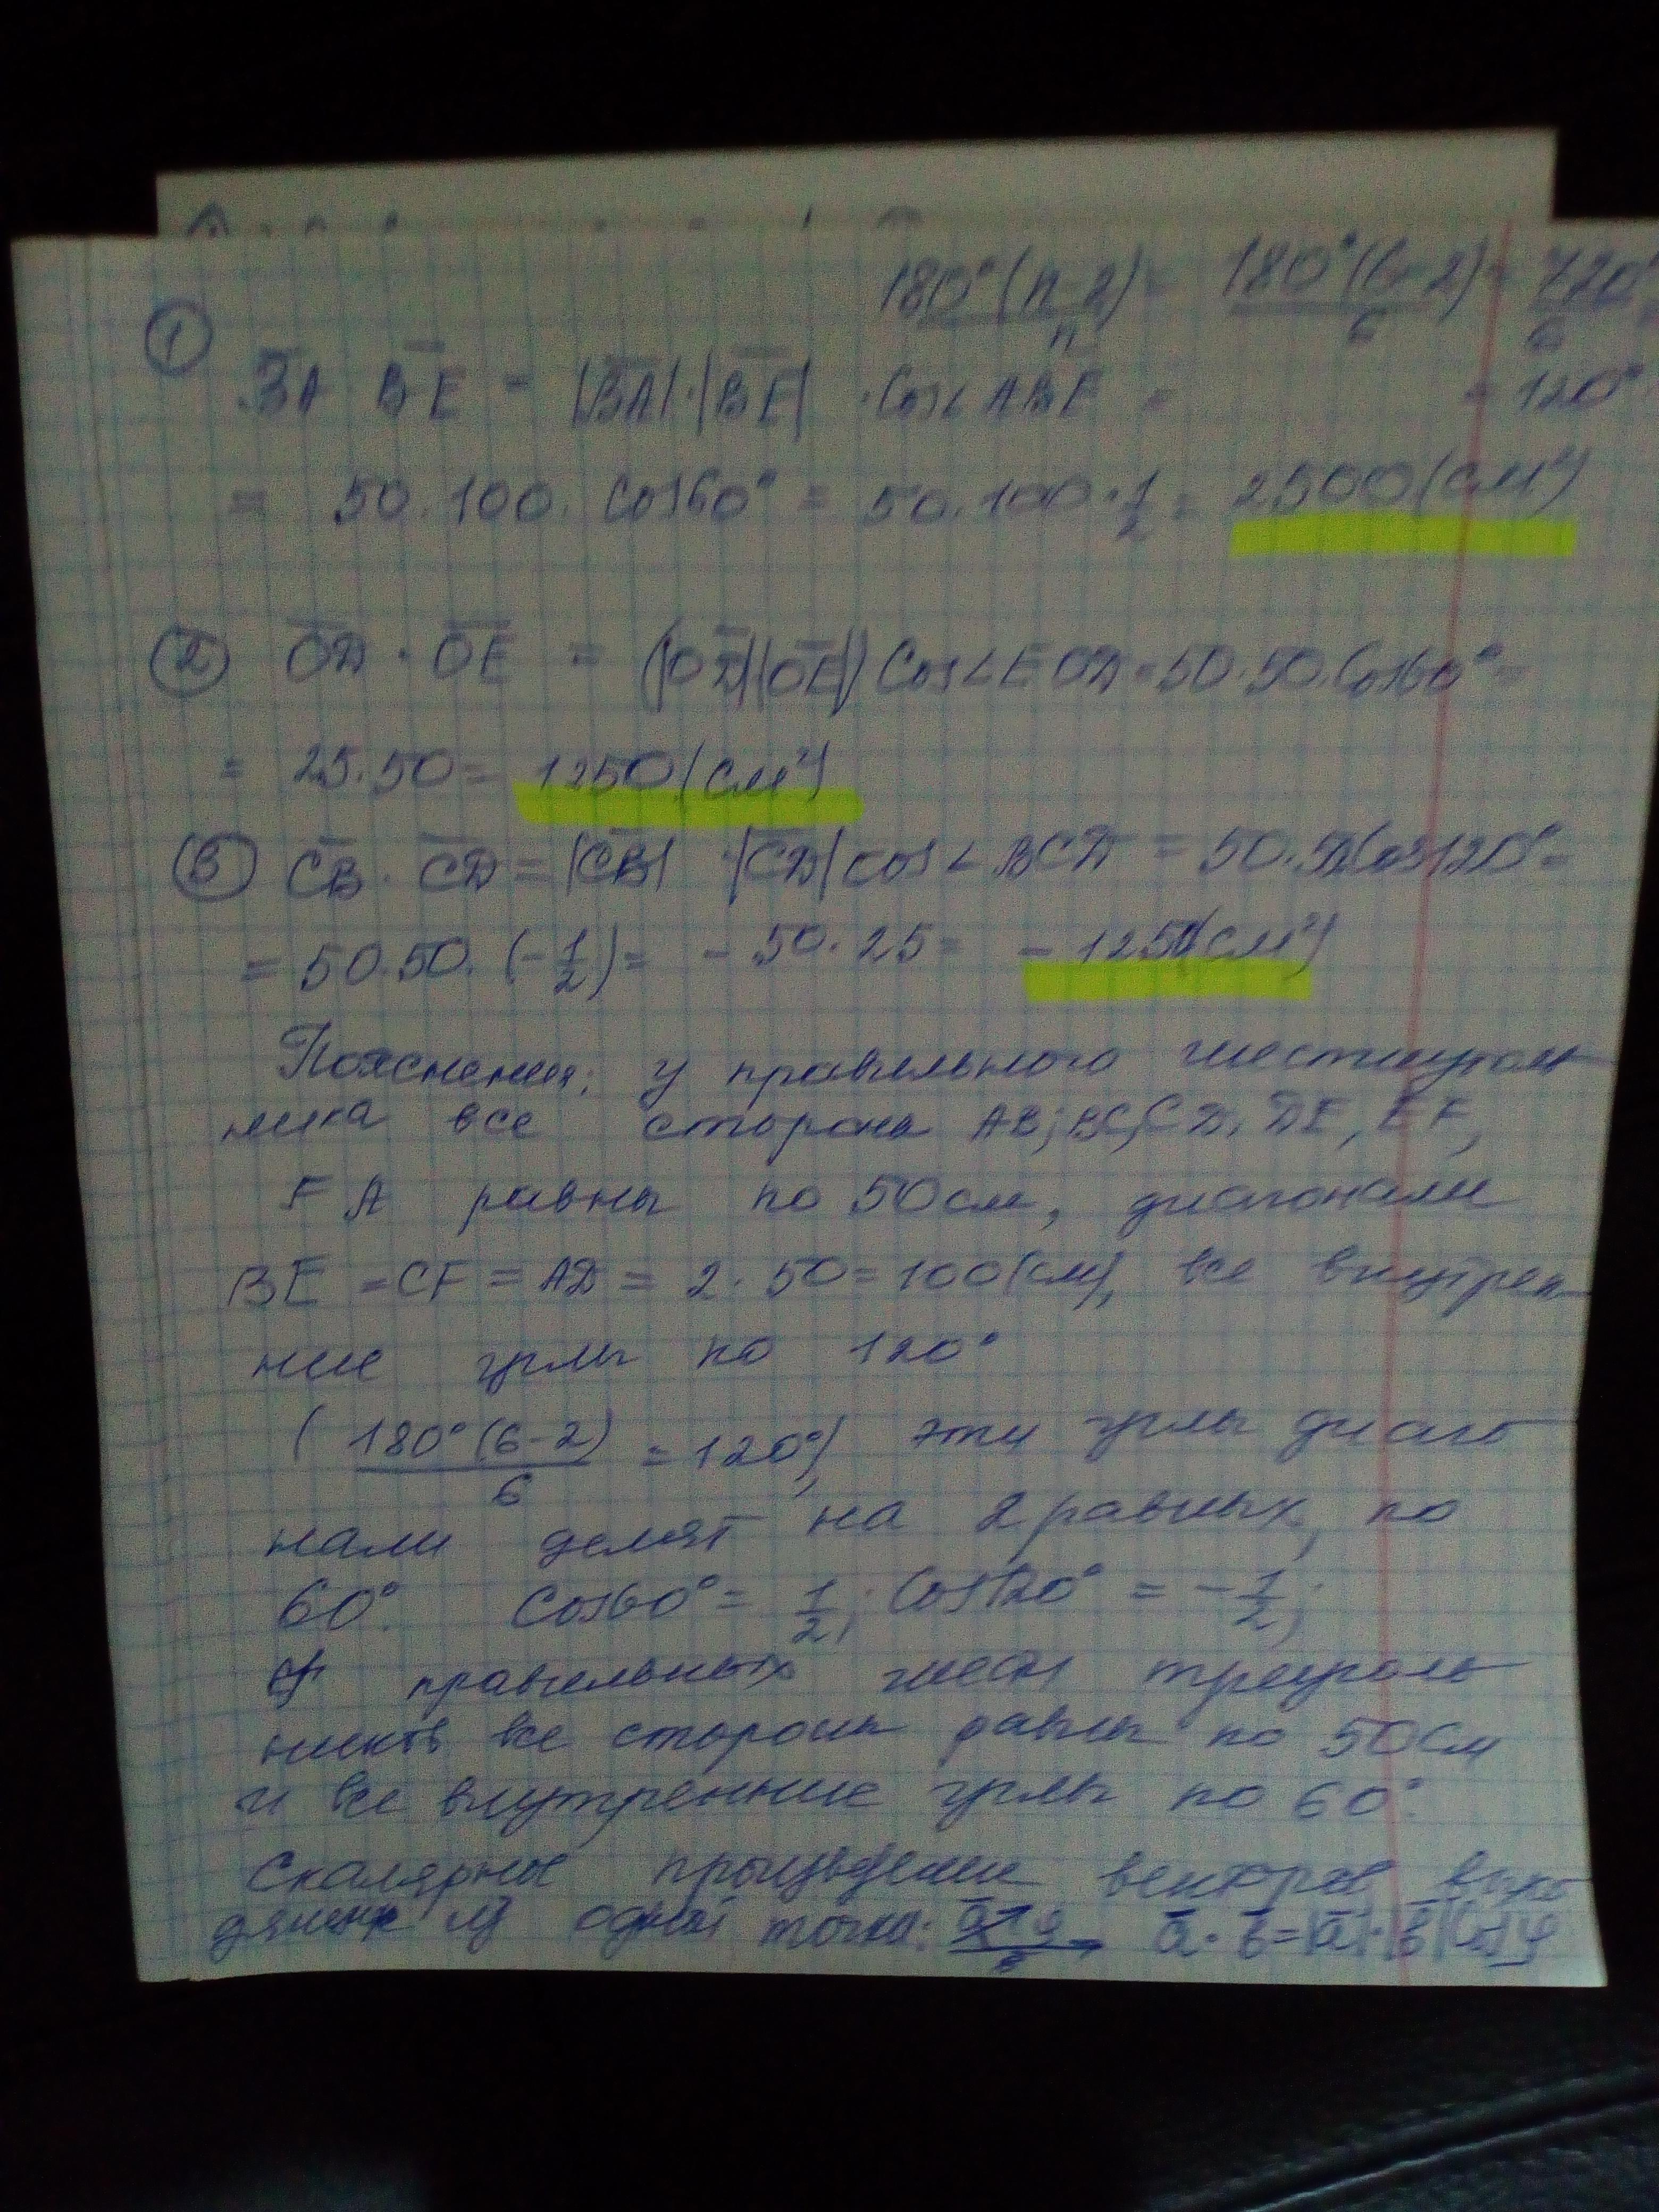 180°(n-2)/n = 180°(6-2)/6 = 720°/6 =
①
BA · BE = |BA|·|BE| · Cos∠ABE = = 120°
= 50·100· Cos60° = 50·100·1/2 = 2500(см²)
② OD · OE = (|OD||OE|) Cos∠EOD = 50·50·Cos60° =
= 25·50 = 1250(см²)
③ CB · CD = |CB| · |CD| cos∠BCD = 50·50Cos120° =
= 50·50·(-1/2) = -50·25 = -1250(см²)
Пояснения: у правильного шестиуголь
ника все стороны AB; BC, CD, DE, EF,
FA равны по 50 см, диагонали
BE = CF = AD = 2·50 = 100(см), все внутрен
ние углы по 120°
(180°(6-2)/6 = 120°), эти углы диаго
нали делят на 2 равных, по
60°. Cos60° = 1/2; Cos120° = -1/2;
У правильных шести треуголь
ников все стороны равны по 50 см
и все внутренние углы по 60°.
Скалярное произведение векторов, выхо
дящих из одной точки: a b a · b = |a|·|b|Cosφ